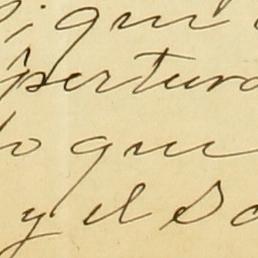 , que
pertura
lo que
y el So